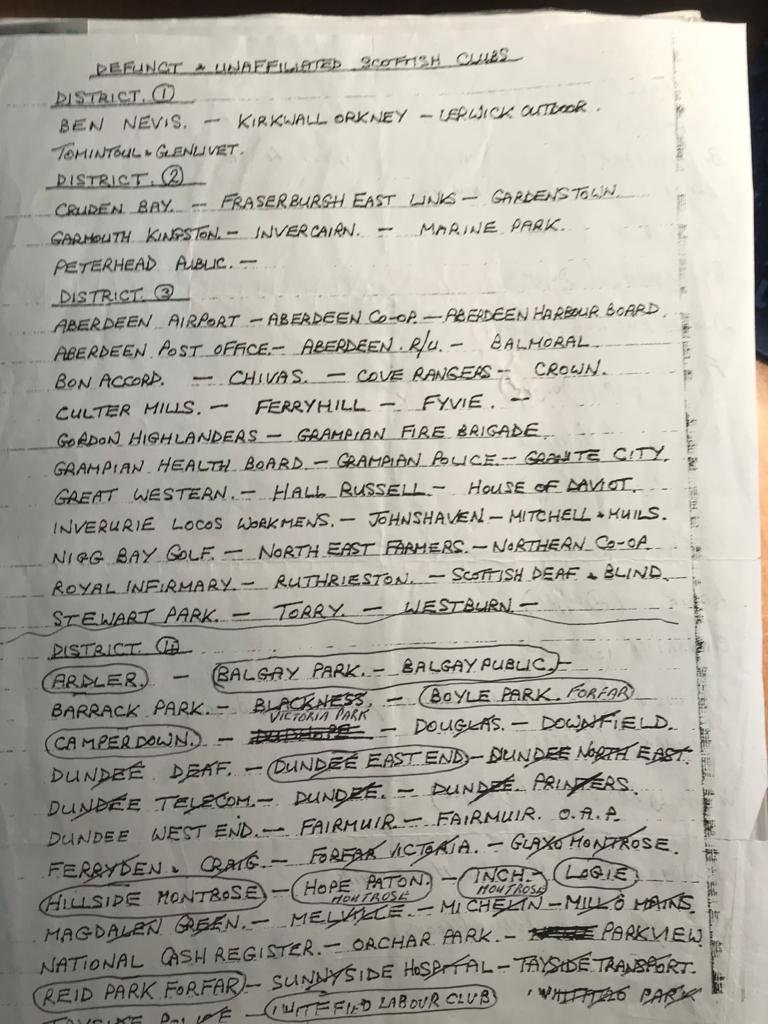 DEFUNCT & UNAFFILIATED SCOTTISH CLUBS
DISTRICT. ①
BEN NEVIS. — KIRKWALL ORKNEY — LERWICK OUTDOOR.
TOMINTOUL & GLENLIVET.
DISTRICT. ②
CRUDEN BAY. — FRASERBURGH EAST LINKS — GARDENSTOWN.
GARMOUTH KINGSTON. — INVERCAIRN. — MARINE PARK.
PETERHEAD PUBLIC. —
DISTRICT. ③
ABERDEEN AIRPORT — ABERDEEN CO-OP. — ABERDEEN HARBOUR BOARD.
ABERDEEN POST OFFICE. — ABERDEEN. R/U. — BALMORAL.
BON ACCORD. — CHIVAS. — COVE RANGERS — CROWN.
CULTER MILLS. — FERRYHILL — FYVIE. —
GORDON HIGHLANDERS — GRAMPIAN FIRE BRIGADE.
GRAMPIAN HEALTH BOARD. — GRAMPIAN POLICE. — GRANITE CITY.
GREAT WESTERN. — HALL RUSSELL — HOUSE OF DAVIOT.
INVERURIE LOCOS WORKMENS. — JOHNSHAVEN — MITCHELL & MUILS.
NIGG BAY GOLF. — NORTH EAST FARMERS. — NORTHERN CO-OP.
ROYAL INFIRMARY. — RUTHRIESTON. — SCOTTISH DEAF & BLIND.
STEWART PARK. — TORRY. — WESTBURN —
DISTRICT.
ARDLER. — BALGAY PARK. — BALGAY PUBLIC. —
BARRACK PARK. — BLACKNESS. — BOYLE PARK. FORFAR
VICTORIA PARK
CAMPERDOWN. — — DOUGLAS. — DOWNFIELD.
DUNDEE DEAF. — DUNDEE EAST END — DUNDEE NORTH EAST.
DUNDEE TELECOM. — DUNDEE. — DUNDEE. PRINTERS.
DUNDEE WEST END. — FAIRMUIR. — FAIRMUIR. O.A.P.
FERRYDEN & CRAIG. — FORFAR VICTORIA. — GLAXO MONTROSE.
HILLSIDE MONTROSE — HOPE PATON. — INCH. — LOGIE
MONTROSE MONTROSE
MAGDALEN GREEN. — MELVILLE. — MICHELIN — MILL O MAINS.
NATIONAL CASH REGISTER. — ORCHAR PARK. — PARKVIEW.
REID PARK FORFAR — SUNNYSIDE HOSPITAL — TAYSIDE TRANSPORT.
TAYSIDE POLICE — WHITFIELD LABOUR CLUB PARK